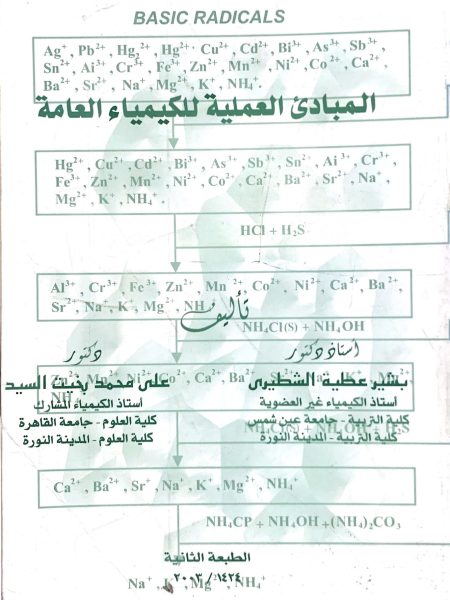 BASIC RADICALS
Ag⁺, Pb²⁺, Hg₂²⁺, Hg²⁺ Cu²⁺, Cd²⁺, Bi³⁺, As³⁺, Sb³⁺,
Sn²⁺, Ai³⁺, Cr³⁺, Fe³⁺, Zn²⁺, Mn²⁺, Ni²⁺, Co²⁺, Ca²⁺,
Ba²⁺, Sr²⁺, Na⁺, Mg²⁺, K⁺, NH₄⁺.
المبادئ العملية للكيمياء العامة
Hg²⁺, Cu²⁺, Cd²⁺, Bi³⁺, As³⁺, Sb³⁺, Sn²⁺, Ai³⁺, Cr³⁺,
Fe³⁺, Zn²⁺, Mn²⁺, Ni²⁺, Co²⁺, Ca²⁺, Ba²⁺, Sr²⁺, Na⁺,
Mg²⁺, K⁺, NH₄⁺.
HCl + H₂S
Al³⁺, Cr³⁺, Fe³⁺, Zn²⁺, Mn²⁺, Co²⁺, Ni²⁺, Ca²⁺, Ba²⁺,
Sr²⁺, Na⁺, K⁺, Mg²⁺, NH
تأليف
NH₄Cl(S) + NH₄OH
أستاذ دكتور
بشير عطية الشطيرى
أستاذ الكيمياء غير العضوية
كلية التربية - جامعة عين شمس
كلية التربية - المدينة النورة
دكتور
على محمد بخيت السيد
أستاذ الكيمياء المشارك
كلية العلوم - جامعة القاهرة
كلية العلوم - المدينة النورة
Ca²⁺, Ba²⁺, Sr⁺, Na⁺, K⁺, Mg²⁺, NH₄⁺
NH₄CP + NH₄OH + (NH₄)₂CO₃
الطبعة الثانية
١٤٢٤ / ٢٠٠٣
Na⁺, K⁺, Mg²⁺, NH₄⁺